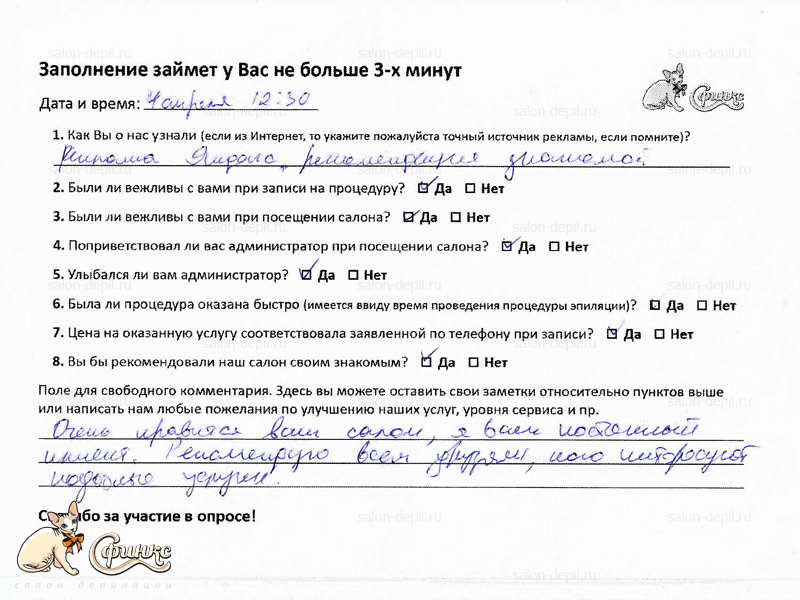 Заполнение займет у Вас не больше 3-х минут
Финкс
Дата и время: 4 апреля 12:30
1. Как Вы о нас узнали (если из Интернет, то укажите пожалуйста точный источник рекламы, если помните)?
Реклама Яндекс, рекомендация знакомой
2. Были ли вежливы с вами при записи на процедуру? Да Нет
3. Были ли вежливы с вами при посещении салона? Да Нет
4. Поприветствовал ли вас администратор при посещении салона? Да Нет
5. Улыбался ли вам администратор? Да Нет
6. Была ли процедура оказана быстро (имеется ввиду время проведения процедуры эпиляции)? Да Нет
7. Цена на оказанную услугу соответствовала заявленной по телефону при записи? Да Нет
8. Вы бы рекомендовали наш салон своим знакомым? Да Нет
Поле для свободного комментария. Здесь вы можете оставить свои заметки относительно пунктов выше
или написать нам любые пожелания по улучшению наших услуг, уровня сервиса и пр.
Очень нравится ваш салон, я ваш постоянный
клиент. Рекомендую всем друзьям, кого интересуют
подобные услуги.
Спасибо за участие в опросе!
Сфинкс
салон депиляции
salon-depil.ru